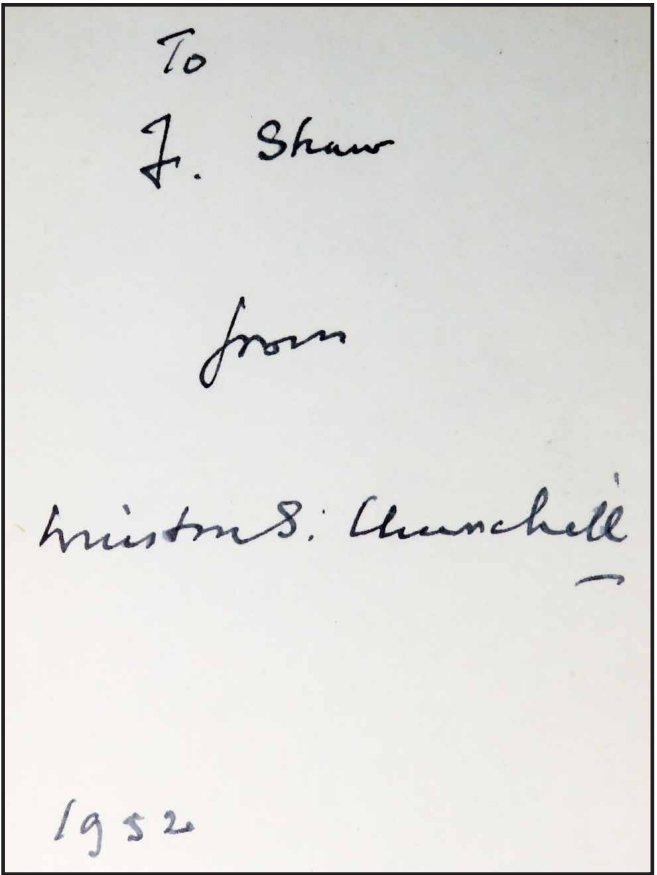 To
J. Shaw
from
Winston S. Churchill
1952